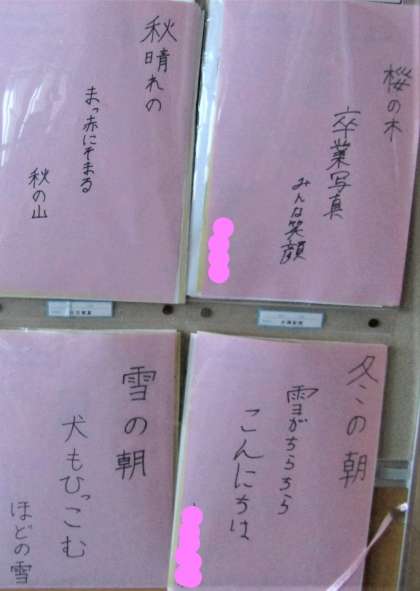 桜の木
卒業写真
みんな笑顔
秋晴れの
まっ赤にそまる
秋の山
冬の朝
雪がちらちら
こんにちは
雪の朝
犬もひっこむ
ほどの雪